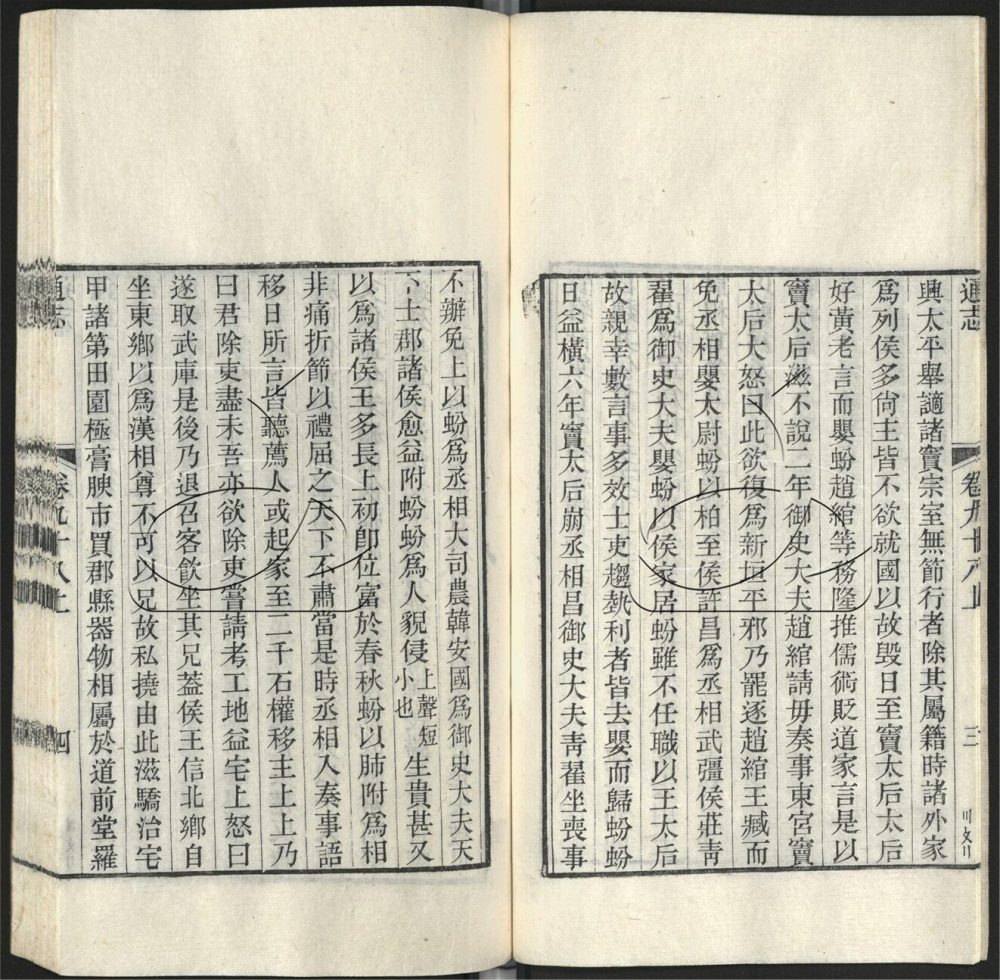 通志
卷九十八上
三
興太平舉謫諸竇宗室無節行者除其屬籍時諸外家
爲列侯多尚主皆不欲就國以故毀日至竇太后太后
好黃老言而嬰蚡趙綰等務隆推儒術貶道家言是以
竇太后滋不說二年御史大夫趙綰請毋奏事東宮竇
太后大怒曰此欲復爲新垣平邪乃罷逐趙綰王臧而
免丞相嬰太尉蚡以柏至侯許昌爲丞相武彊侯莊青
翟爲御史大夫嬰蚡以侯家居蚡雖不任職以王太后
故親幸數言事多效士吏趨埶利者皆去嬰而歸蚡蚡
日益橫六年竇太后崩丞相昌御史大夫青翟坐喪事
不辦免上以蚡爲丞相大司農韓安國爲御史大夫天
下士郡諸侯愈益附蚡蚡爲人貌侵上聲短小也生貴甚又
以爲諸侯王多長上初卽位富於春秋蚡以肺附爲相
非痛折節以禮屈之天下不肅當是時丞相入奏事語
移日所言皆聽薦人或起家至二千石權移主上上乃
曰君除吏盡未吾亦欲除吏嘗請考工地益宅上怒曰
遂取武庫是後乃退召客飲坐其兄蓋侯王信北鄉自
坐東鄉以爲漢相尊不可以兄故私撓由此滋驕治宅
甲諸第田園極膏腴市買郡縣器物相屬於道前堂羅
通志
卷九十八上
四